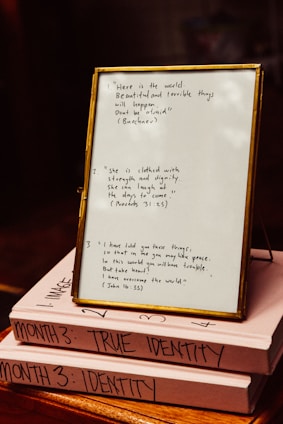 1 "Here is the world.
Beautiful and terrible things
will happen.
Dont be afraid"
(Buechner)
2. "She is clothed with
strength and dignity
She can laugh at
the days to come."
(Proverbs 31:25)
3 "I have told you these things,
so that in me you may have peace.
In this world you will have trouble.
But take heart!
I have overcome the world"
(John 16:33)
1. IMAGE
2
3
4
MONTH 3: TRUE IDENTITY
MONTH 3: IDENTITY